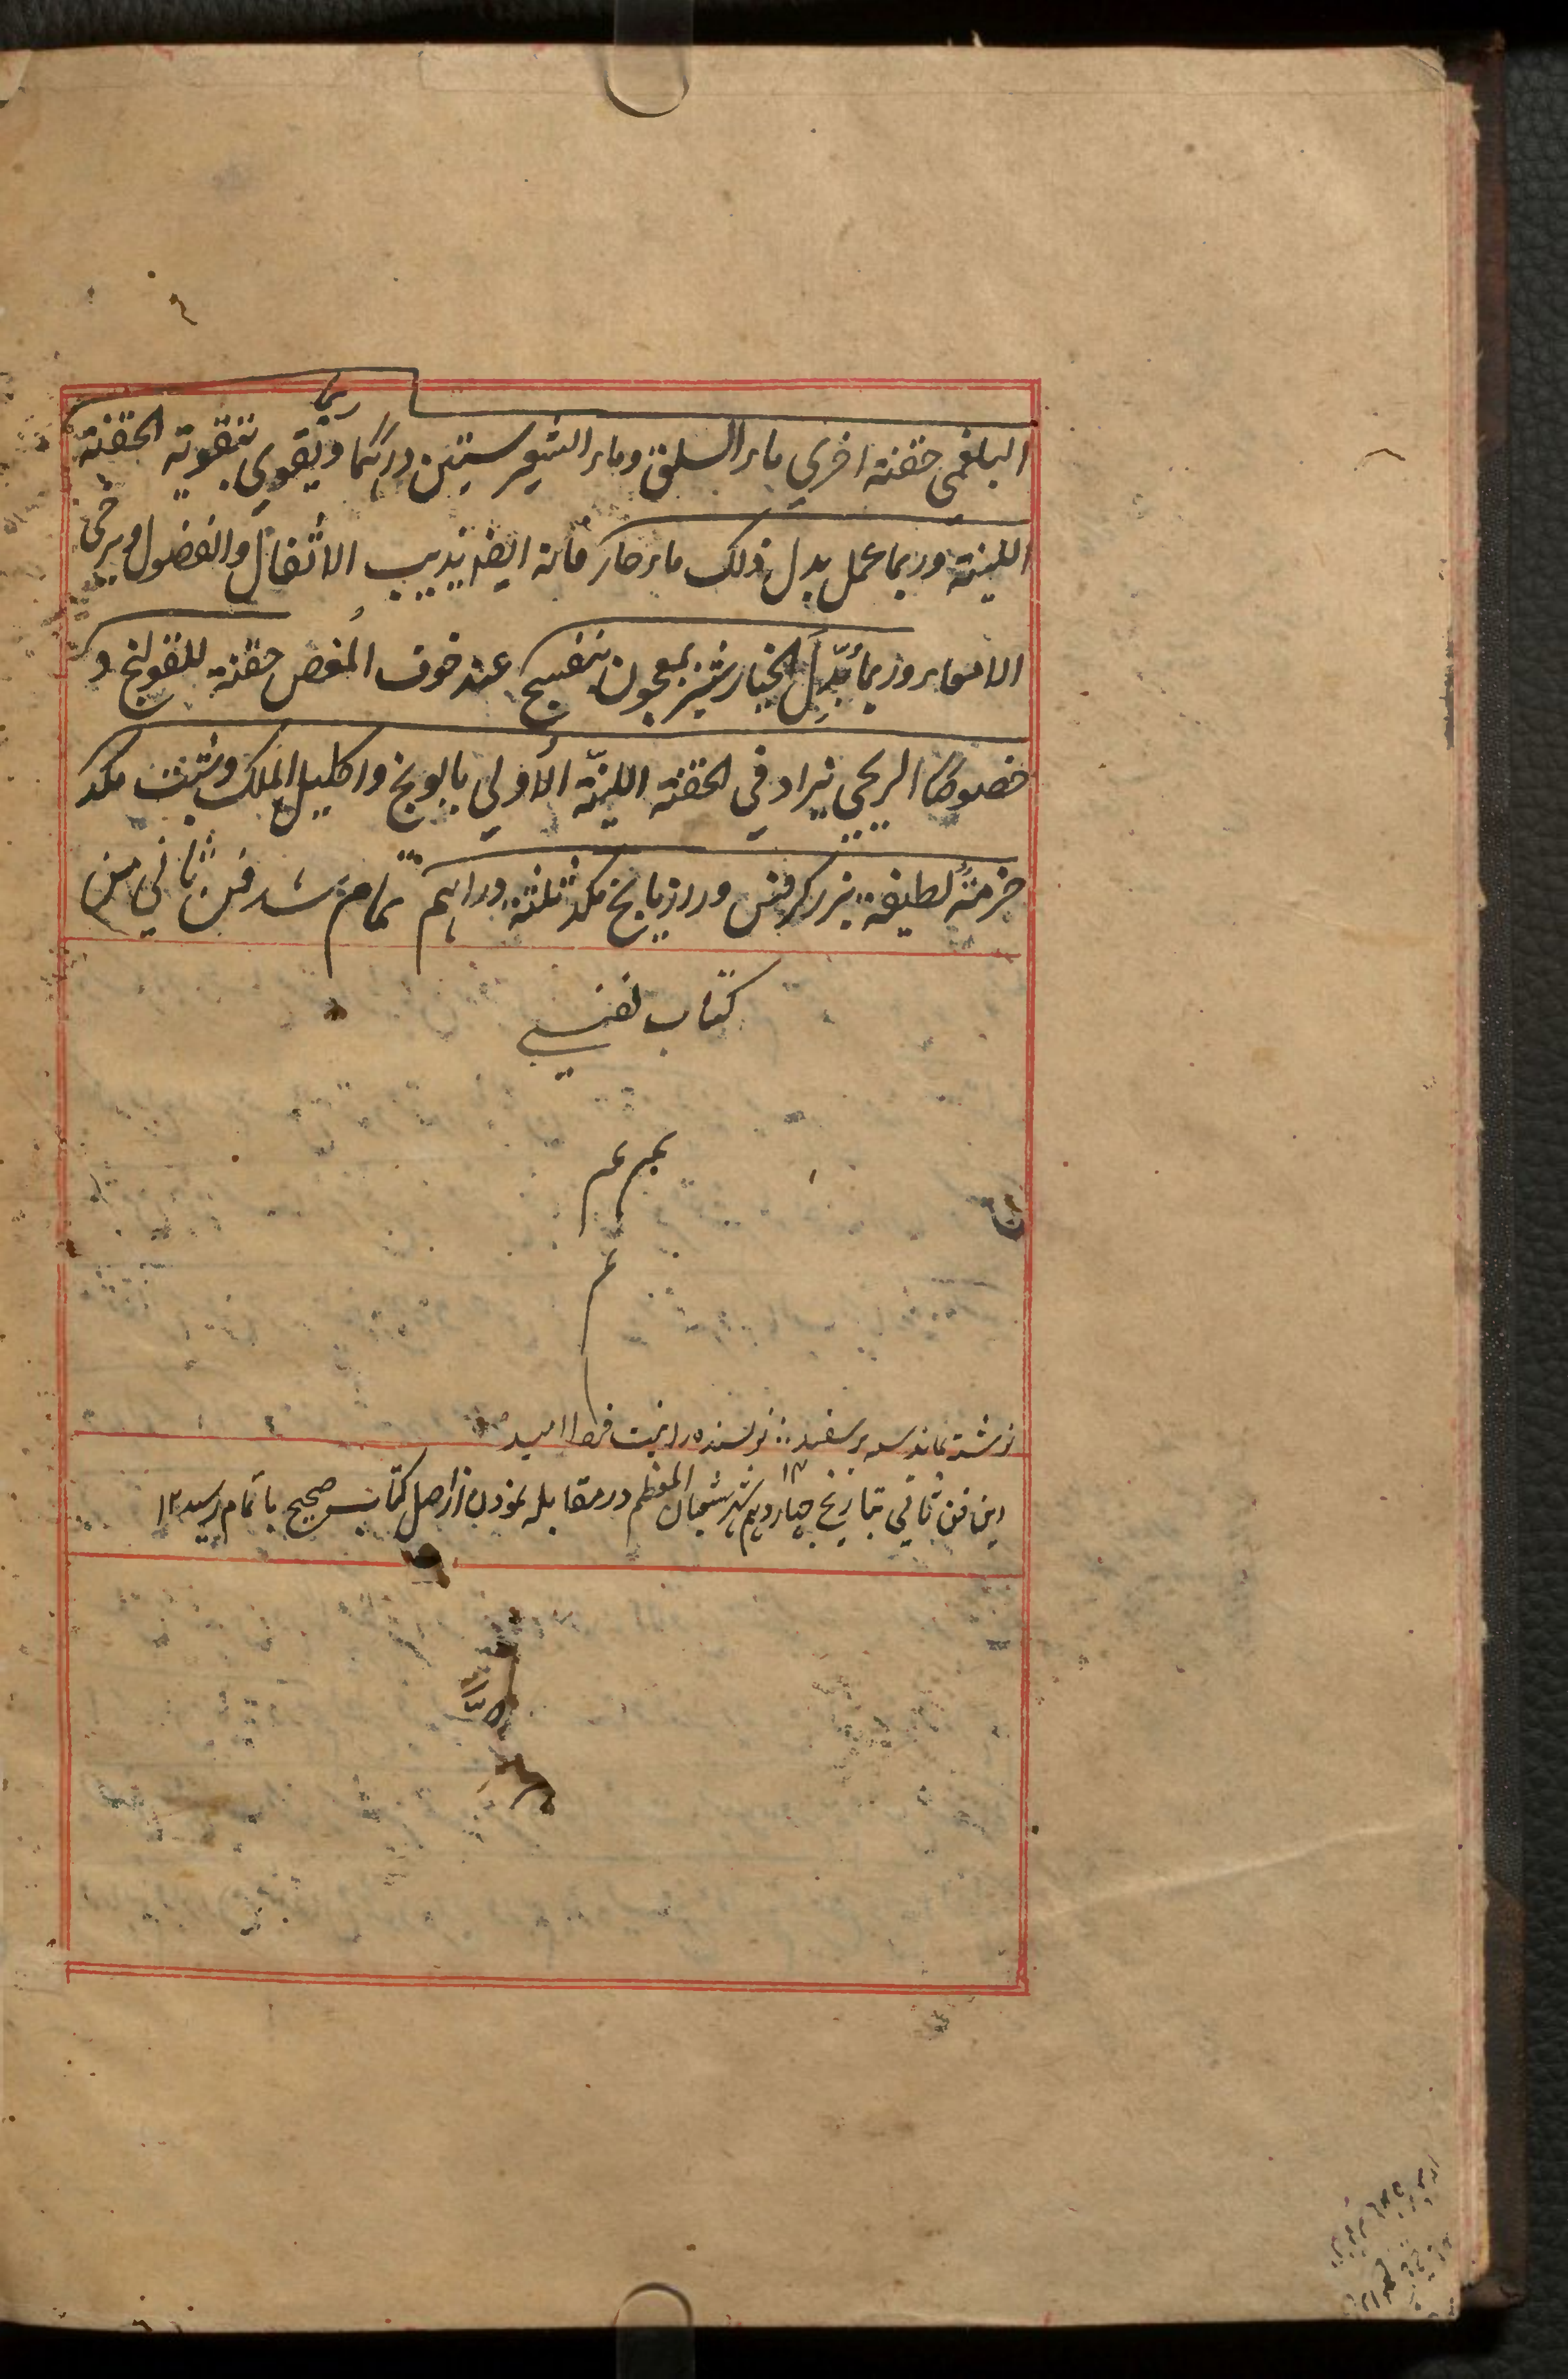 البلغمي حقنة اخري ماء السلق وماء الشعير ستين درهما ويقوي بتقويه الحقنة
اللينة وربما عمل بدل ذلك ماء حار فانه ايضا يذيب الاثفال والفضول ويرخي
الامعاء وربما بُدّل الخيارشنبر بمعجون بنفسج عند خوف المغص حقنة للقولنج و
خصوصًا الريحي يزاد في الحقنة اللينّة الأولي بابونج واكليل الملك وشبت مكد
حزمةً لطيفة بزر كرفس ورازيانج مكد ثلثة دراهم تمام شد فن ثاني من
كتاب نفيسي
تم تم
تم
نوشته بماند سیه بر سفید ∴ نویسنده را نیست فردا امید
این فن ثاني بتاریخ چهاردهم ۱۴ شهر شعبان المعظم در مقابله نمودن از اصل کتاب صحیح باتمام رسید ۱۲